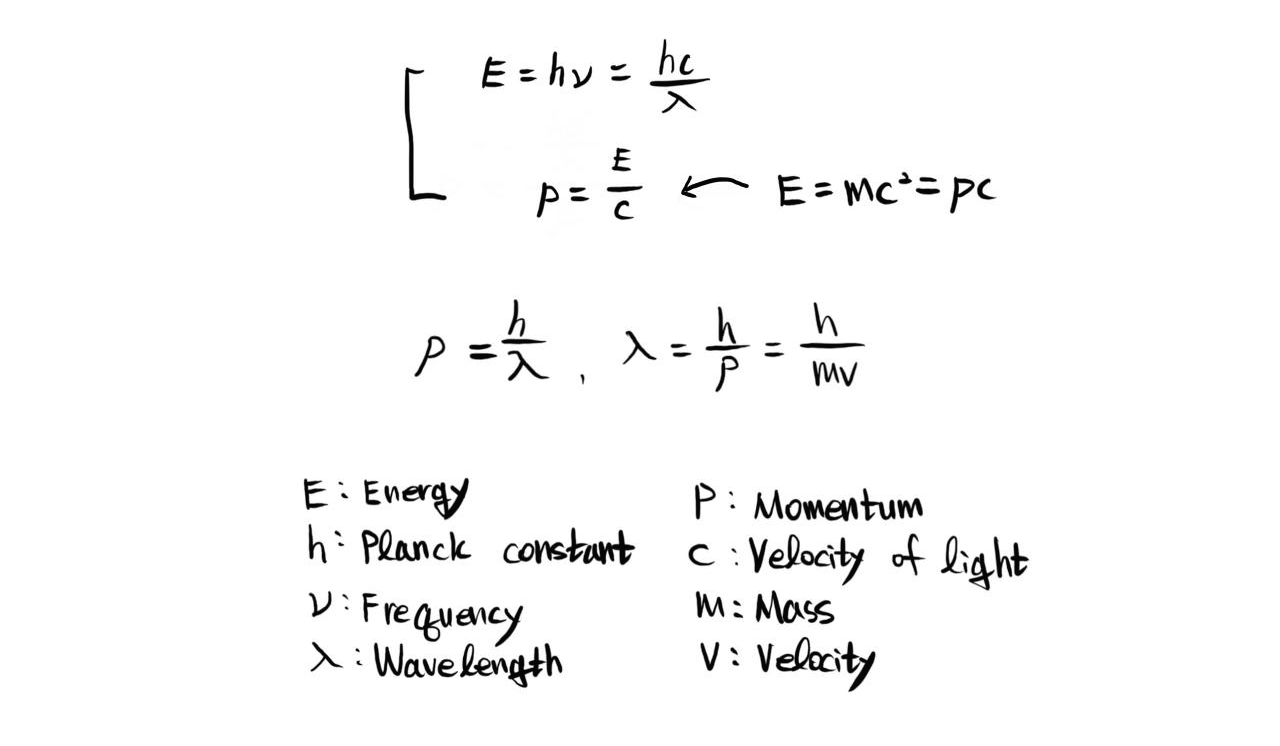 E = hν = hc/λ
p = E/c ← E = mc² = pc
p = h/λ , λ = h/p = h/mv
E : Energy
h : Planck constant
ν : Frequency
λ : Wavelength
P : Momentum
C : Velocity of light
m : Mass
V : Velocity